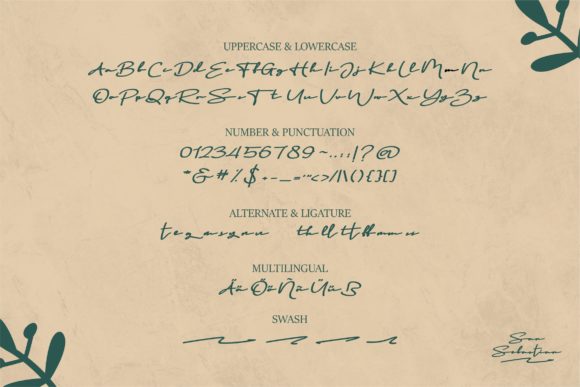 UPPERCASE & LOWERCASE
Aa Bb Cc Dd Ee Ff Gg Hh Ii Jj Kk Ll Mm Nn
Oo Pp Qq Rr Ss Tt Uu Vv Ww Xx Yy Zz
NUMBER & PUNCTUATION
0123456789~.,:;|?@
*&#%$+-_="'<>/|\(){}[]
ALTERNATE & LIGATURE
MULTILINGUAL
Ää Öö Ññ Üü ß
SWASH
San
Sebastian